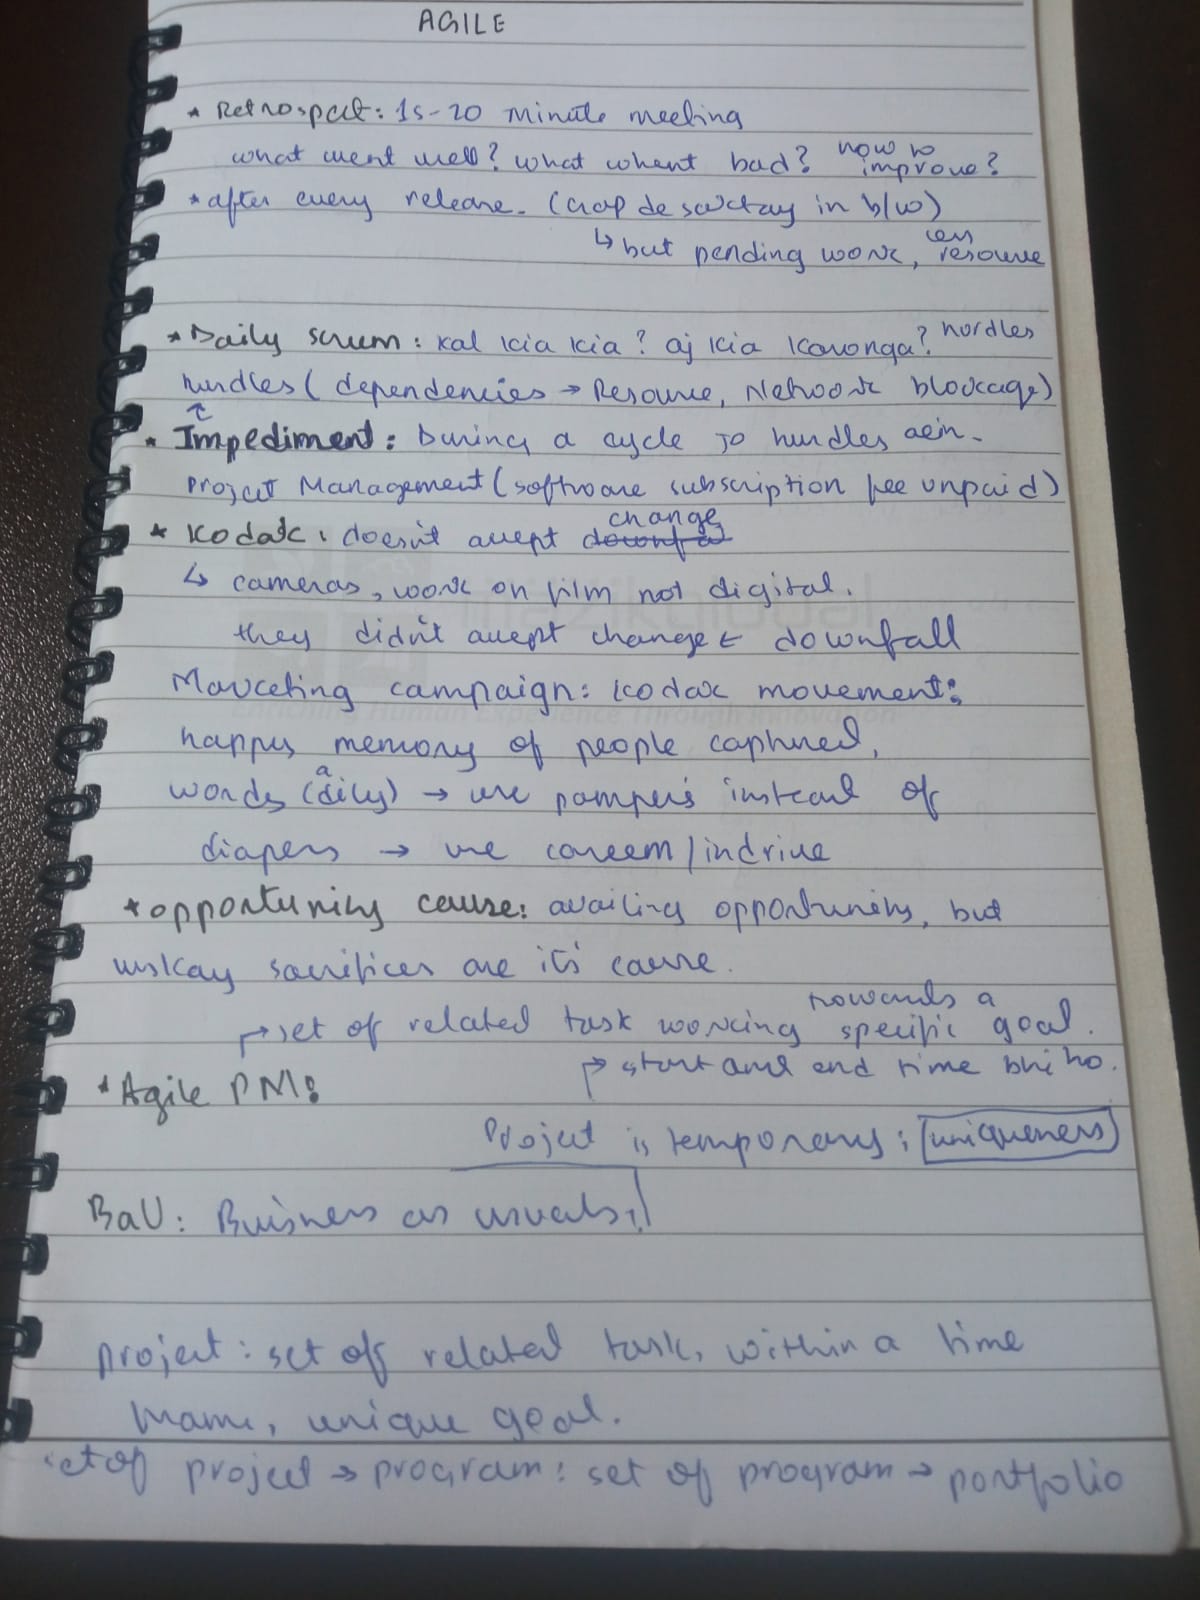 AGILE
* Retrospect: 15-20 minute meeting
what went well? what whent bad? how to improve?
* after every release. (aap de saktay in b/w)
↳ but pending work, less resource
* Daily scrum: kal kia kia? aj kia karonga? hurdles
hurdles (dependencies → Resource, Network blockage)
* Impediment: During a cycle jo hurdles aein.
project Management (software subscription fee unpaid)
* Kodak: doesn't accept change
↳ cameras, work on film not digital.
they didn't accept change & downfall
Marketing campaign: kodak movement:
happy memory of people captured,
words (daily) → use pampers instead of
diapers → use careem/indrive
* opportunity cause: availing opportunity, but
uskay sacrifices are it's cause.
↱ set of related task working towards a specific goal.
↱ start and end time bhi ho.
* Agile PM:
Project is temporary: uniqueness
BaU: Buisness as usuals
project: set of related task, within a time
frame, unique goal.
set of project → program: set of program → portfolio